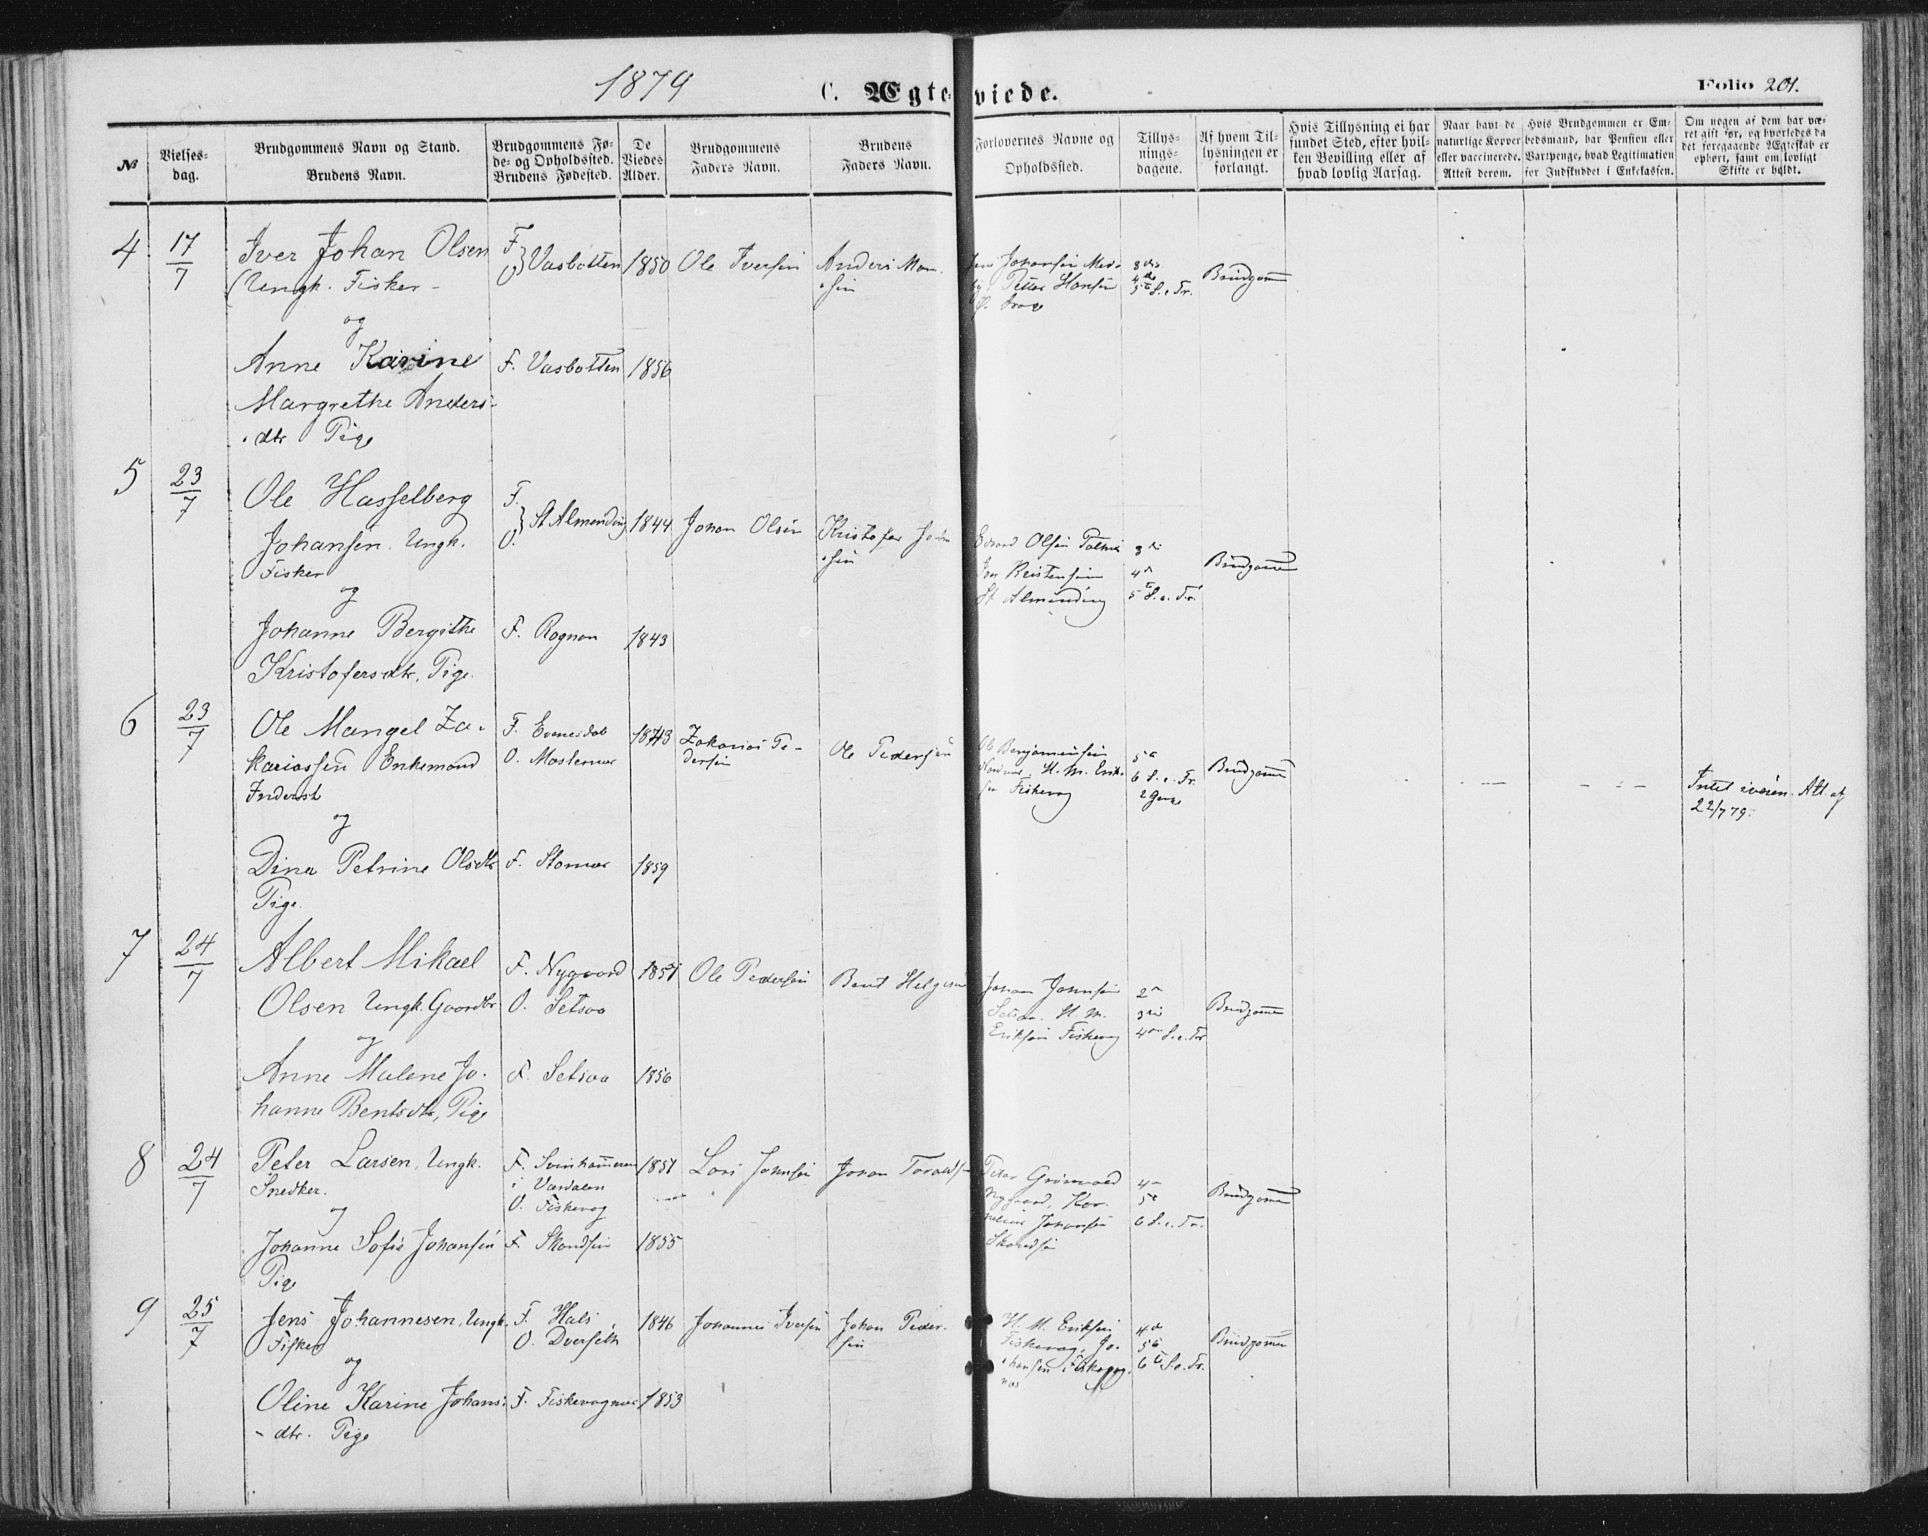 1879
C. Ægteviede.
Folio 201.
№
Vielses-
dag.
Brudgommens Navn og Stand.
Brudens Navn.
Brudgommens Fø-
de- og Opholdssted.
Brudens Fødested.
De
Viedes
Alder.
Brudgommens
Faders Navn.
Brudens
Faders Navn.
Forlovernes Navne og
Opholdssted.
Tillys-
nings-
dagene.
Af hvem Til-
lysningen er
forlangt.
Hvis Tillysning ei har
fundet Sted, efter hvil-
ken Bevilling eller af
hvad lovlig Aarsag.
Naar havt de
naturlige Kopper
eller vaccinerede.
Attest derom.
Hvis Brudgommen er Em-
bedsmand, har Pension eller
Vartpenge, hvad Legitimation
for Indskuddet i Enkekassen.
Om nogen af dem har væ-
ret gift før, og hvorledes da
det foregaaende Ægteskab er
ophørt, samt om lovligt
Skifte er holdt.
4 17/7 Iver Johan Olsen F. O. Vasbotten 1850 Ole Iversen Anders Mon-
sen
Ungk. Fisker
Petter Hansen
3die
4de
5te S. e. Tr.
Brudgommen
og
Anne Karine F. Vasbotten 1856
Margrethe Anders-
dtr Pige
5 23/7 Ole Hasselberg F. O. St Almending 1844 Johan Olsen Kristofer
Johansen. Ungk.
Fisker
Edvard Olsen
St Almending
3die
4de
5te S. e. Tr.
Brudgommen
og
Johanne Bergithe F. Rognan 1843
Kristofersdtr, Pige.
6 23/7 Ole Mangel Za-
kariassen Enkemand
Inderst
F. Evenesdal
O.
1843 Zakarias Pe-
dersen
Ole Pedersen
Ole Benjaminsen
H. M. Erik-
sen Fiskevag
5te
6 S. e. Tr.
2 Gange
Brudgommen
- - -
- - -
Intet iveien. Att. af
22/7 79.
og
Dina Petrine Olsdtr F. Stornes 1859
Pige.
7 24/7 Albert Mikael F. Nygaard 1851 Ole Pedersen Bent Helgesen
Olsen Ungk. Gaardbr O. Setsaa
Johan Johnsen
Setsaa. H. M.
Eriksen Fiskevag
2den
3die
4de S. e. Tr
Brudgommen
og
Anne Malene Jo- F. Setsaa 1856
hanne Bentsdtr, Pige
8 24/7 Peter Larsen, Ungk.
Snedker.
F. Svinhammeren
i Værdalen
O. Fiskevag
1851 Lars Johnsen Johan
Peter Grønvold
Nygaard, Kor-
nelius Johansen
4de
5te
6 S. e. Tr.
Brudgommen
og
Johanne Sofie Johansen F. 1855
Pige
9 25/7 Jens Johannesen, Ungk. F. Hals 1846 Johannes Iversen Johan Peder-
sen
Fisker O. Dverseth
H. M. Eriksen
Fiskevag, Jo-
hansen
4de
5te
6te S. e. Tr.
Brudgommen
og
Oline Karine Johans- F. Fiskevagnes 1853
dtr. Pige